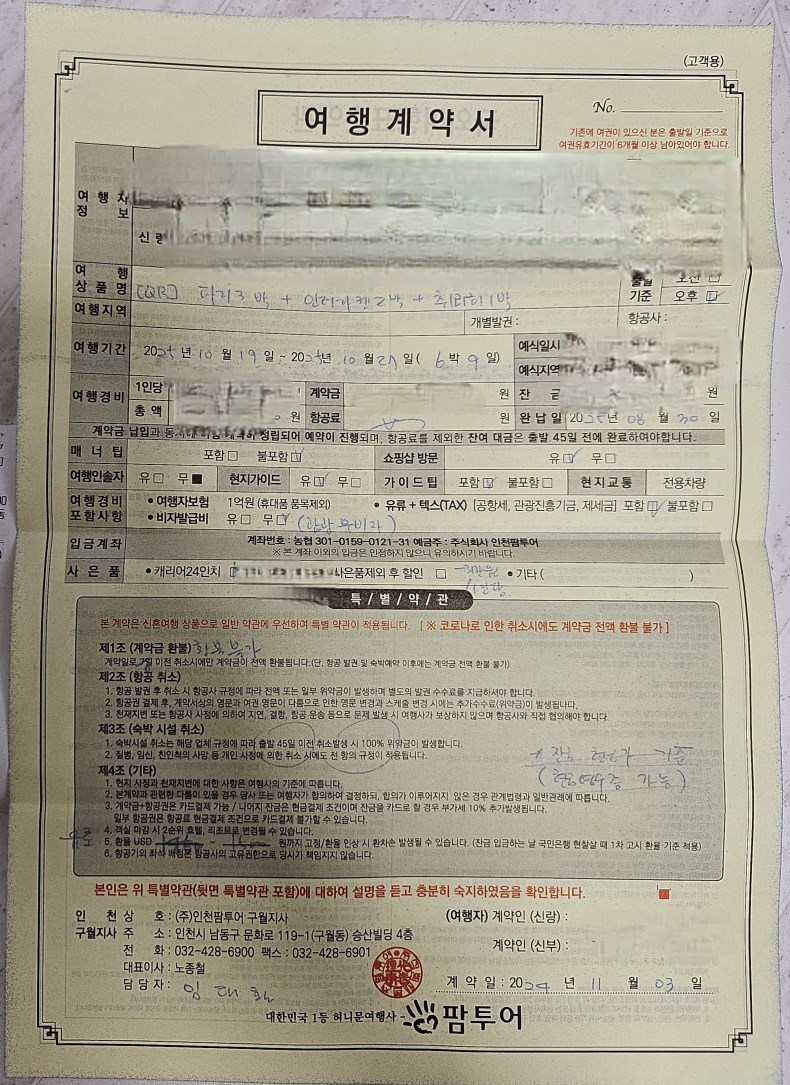 (고객용)
여행계약서
No.
기존에 여권이 있으신 분은 출발일 기준으로
여권유효기간이 6개월 이상 남아있어야 합니다.
여행자
정보
신랑
여행
상품명
[QR] 파리3박 + 인터라켄2박 + 취리히1박
출발
기준
오전 □
오후 ☑
여행지역
개별발권 :
항공사 :
여행기간
2025년 10월 19일 ~ 2025년 10월 27일( 6박 9일)
예식일시
예식지역
여행경비
1인당
계약금
원
잔금
원
총액
원
항공료
원
완납일
2025년 08월 30일
계약금 납입과 정립되어 예약이 진행되며, 항공료를 제외한 잔여 대금은 출발 45일 전에 완료하여야합니다.
매너팁
포함□ 불포함☑
쇼핑샵 방문
유☑ 무□
여행인솔자
유□ 무■
현지가이드
유☑ 무□
가이드팁
포함☑ 불포함□
현지교통
전용차량
여행경비
포함사항
• 여행자보험 1억원 (휴대품 품목제외)
• 유류 + 텍스(TAX) [공항세, 관광진흥기금, 제세금] 포함☑ 불포함□
• 비자발급비 유□ 무☑ (관광무비자)
입금계좌
계좌번호 : 농협 301-0159-0121-31 예금주 : 주식회사 인천팜투어
※ 본 계좌 이외의 입금은 인정하지 않으니 유의하시기 바랍니다.
사은품
• 캐리어24인치
사은품제외 후 할인 □
/1인당
• 기타 ( )
특/별/약/관
본 계약은 신혼여행 상품으로 일반 약관에 우선하여 특별 약관이 적용됩니다. [ ※ 코로나로 인한 취소시에도 계약금 전액 환불 불가 ]
제1조 (계약금 환불) 환불불가
계약일로 일 이전 취소시에만 계약금이 전액 환불됩니다.(단, 항공 발권 및 숙박예약 이후에는 계약금 전액 환불 불가)
제2조 (항공 취소)
1. 항공 발권 후 취소 시 항공사 규정에 따라 전액 또는 일부 위약금이 발생하며 별도의 발권 수수료를 지급하셔야 합니다.
2. 항공권 결제 후, 계약서상의 영문과 여권 영문이 다름으로 인한 영문 변경과 스케줄 변경 시에는 추가수수료(위약금)이 발생된나다.
3. 천재지변 또는 항공사 사정에 의하여 지연, 결항, 항공 운송 등으로 문제 발생 시 여행가 보상하지 않으며 항공사와 직접 협의해야 합니다.
제3조 (숙박 시설 취소)
1. 숙박시설 취소는 해당 업체 규정에 따라 출발 45일 이전 취소발생 시 100% 위약금이 발생합니다.
2. 질병, 임신, 친인척의 사망 등 개인 사정에 의한 취소 시에도 전 항의 규정이 적용됩니다.
* 잔금 현금가 기준
(현금영수증 가능)
제4조 (기타)
1. 현지 사정과 천재지변에 대한 사항은 여행사의 기준에 따릅니다.
2. 본계약과 관련한 다툼이 있을 경우 당사 또는 여행자가 합의하여 결정하되, 합의가 이루어지지 않은 경우 관계법령과 일반관례에 따릅니다.
3. 계약금+항공권은 카드결제 가능 / 나머지 잔금은 현금결제 조건이며 잔금을 카드로 할 경우 부가세 10% 추가발생됩니다.
일부 항공권은 항공료 현금결제 조건으로 카드결제 불가할 수 있습니다.
4. 객실 마감 시 2순위 호텔, 리조트로 변경될 수 있습니다.
5. 환율 USD ~ 1500 원까지 고정/환율 인상 시 환차손 발생될 수 있습니다. (잔금 입금하는 날 국민은행 현찰살 때 1차 고시 환율 기준 적용)
6. 항공기의 좌석 배정은 항공사의 고유권한으로 당사가 책임지지 않습니다.
본인은 위 특별약관(뒷면 특별약관 포함)에 대하여 설명을 듣고 충분히 숙지하였음을 확인합니다.
인천
구월지사
상호 : (주)인천팜투어 구월지사
주소 : 인천시 남동구 문화로 119-1(구월동) 승산빌딩 4층
전화 : 032-428-6900 팩스 : 032-428-6901
대표이사 : 노종철
담당자 : 임대환
(여행자) 계약인 (신랑) :
계약인 (신부) :
계약일 : 2024년 11월 03일
대한민국 1등 허니문여행사 - 팜투어